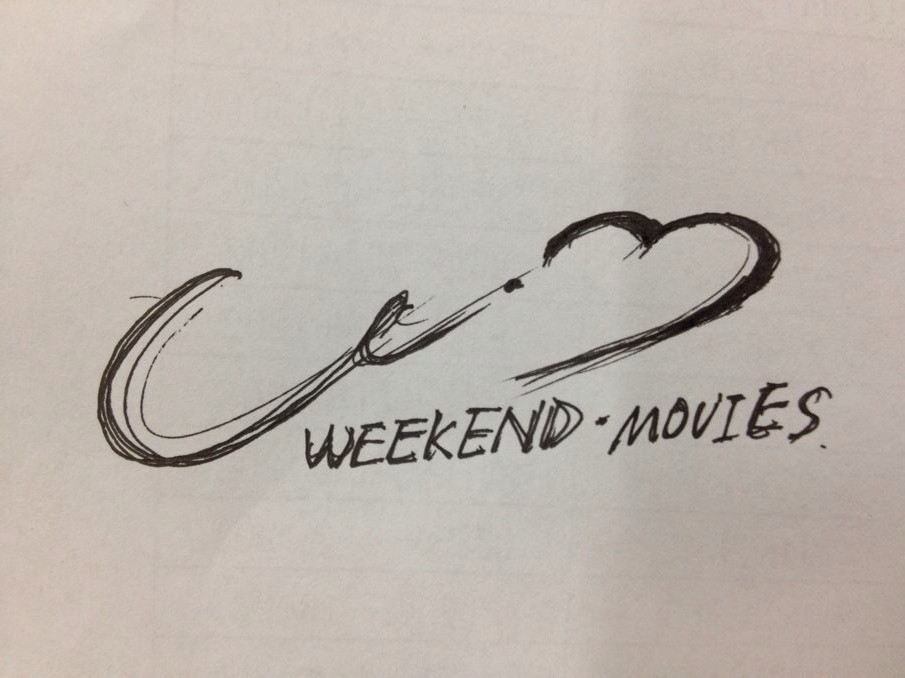 WEEKEND·MOVIES.